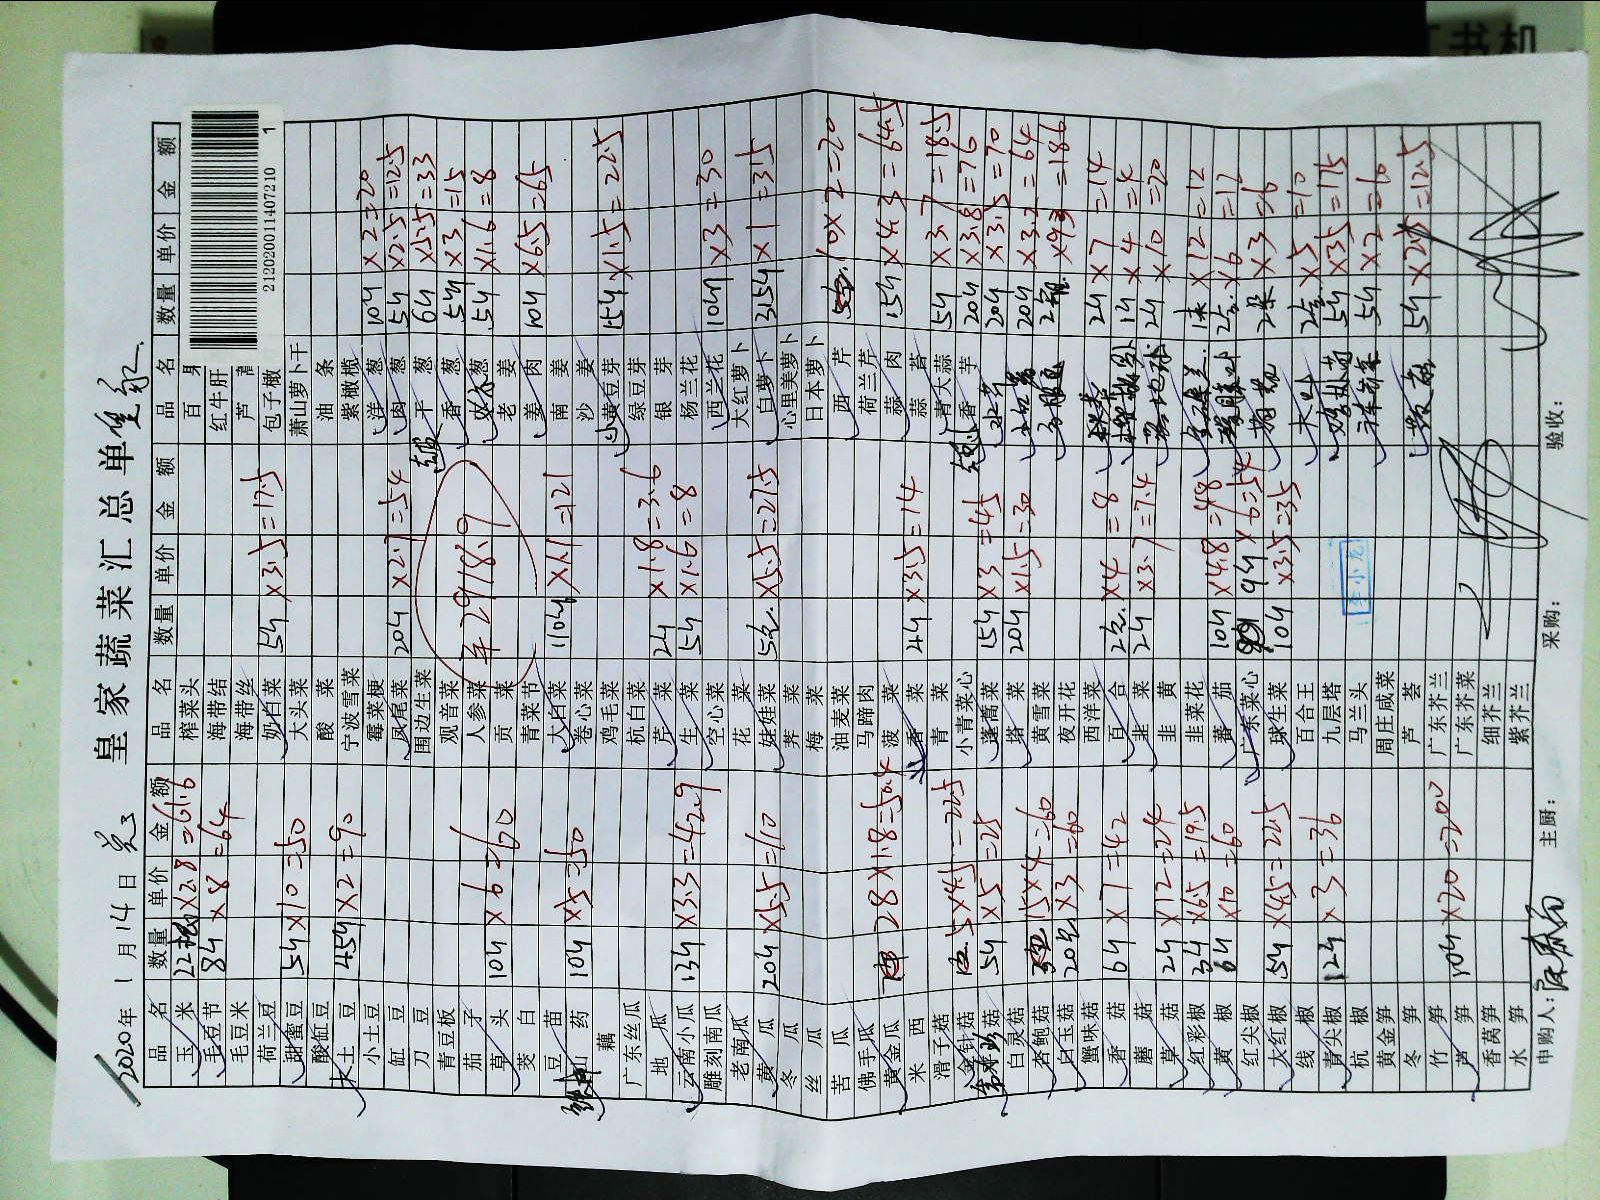 皇家蔬菜汇总单
2020年1月14日
品名 数量 单价 金额 品名 数量 单价 金额 品名 数量 单价 金额
玉米 22根 ×2.8 =61.6 榨菜头 百
毛豆节 8斤 ×8 =64 海带结 红牛肝
毛豆米 海带丝 芦
荷兰豆 奶白菜 5斤 ×3.5 =17.5 包子橄
甜蜜豆 5斤 ×10 =50 大头菜 萧山萝卜干
酸缸豆 酸菜 油条
大土豆 45斤 ×2 =90 宁波雪菜 紫橄榄
小土豆 霉菜梗 洋葱 10斤 ×2 =20
缸豆 凤尾菜 20斤 ×2.7 =54 肉葱 5斤 ×2.5 =12.5
刀豆 围边生菜 干葱 6斤 ×5.5 =33
青豆板 观音菜 香葱 5斤 ×3 =15
茄子 人参菜 ¥2918.9 葱 5斤 ×1.6 =8
草头 10斤 ×6 =60 贡菜 老姜
茭白 青菜节 姜肉 10斤 ×6.5 =65
豆苗 大白菜 110斤 ×1.1 =121 南姜
山药 10斤 ×5 =50 卷心菜 沙姜
藕 鸡毛菜 小黄豆芽 15斤 ×1.5 =22.5
广东丝瓜 杭白菜 绿豆芽
地瓜 芹菜 2斤 ×1.8 =3.6 银芽
云南小瓜 13斤 ×3.3 =42.9 生菜 5斤 ×1.6 =8 杨兰花
雕刻南瓜 空心菜 西兰花 10斤 ×3 =30
老南瓜 花菜 大红萝卜
黄瓜 20斤 ×5.5 =110 娃娃菜 5包 ×5.5 =27.5 白萝卜 315斤 ×1 =315
冬瓜 荠菜 心里美萝卜
丝瓜 梅菜 日本萝卜
苦瓜 油麦菜 西芹 10×2 =20
佛手瓜 马蹄肉 荷兰芹
黄金瓜 28×1.8 =50.4 菠菜 蒜肉 15斤 ×4.3 =64.5
米西 香菜 4斤 ×3.5 =14 蒜苔
滑子菇 青菜 青大蒜 5斤 ×3.7 =18.5
金针菇 5×4.5 =22.5 小青菜心 香芋 20斤 ×3.8 =76
菇 5斤 ×5 =25 蓬蒿菜 15斤 ×3 =45 20斤 ×3.5 =70
白灵菇 塔菜 20斤 ×1.5 =30 20斤 ×3.2 =64
杏鲍菇 15×4 =60 黄雪菜 ×93 =186
白玉菇 20包 ×3 =60 夜开花
蟹味菇 西洋菜 2斤 ×7 =14
香菇 6斤 ×7 =42 百合 2包 ×4 =8 1斤 ×4 =4
蘑菇 韭菜 2斤 ×3.7 =7.4 2斤 ×10 =20
草菇 2斤 ×12 =24 韭黄
红彩椒 3斤 ×6.5 =19.5 韭菜花 ×12 =12
黄椒 6斤 ×10 =60 蕃茄 10斤 ×4.8 =48 ×6 =12
红尖椒 广东菜心 9斤 ×6 =54 2朵 ×3 =6
大红椒 5斤 ×4.5 =22.5 球生菜 10斤 ×3.5 =35
线椒 百合王 木耳 2包 ×5 =10
青尖椒 12斤 ×3 =36 九层塔 5斤 ×35 =175
杭椒 马兰头 5斤 ×2 =10
黄金笋 周庄咸菜
冬笋 芦荟 5斤 ×2.5 =12.5
竹笋 广东芥兰
芦笋 10斤 ×20 =200 广东芥菜
香莴笋 细芥兰
水笋 紫芥兰
申购人: 主厨: 采购: 验收:
李小龙
2120200114072101